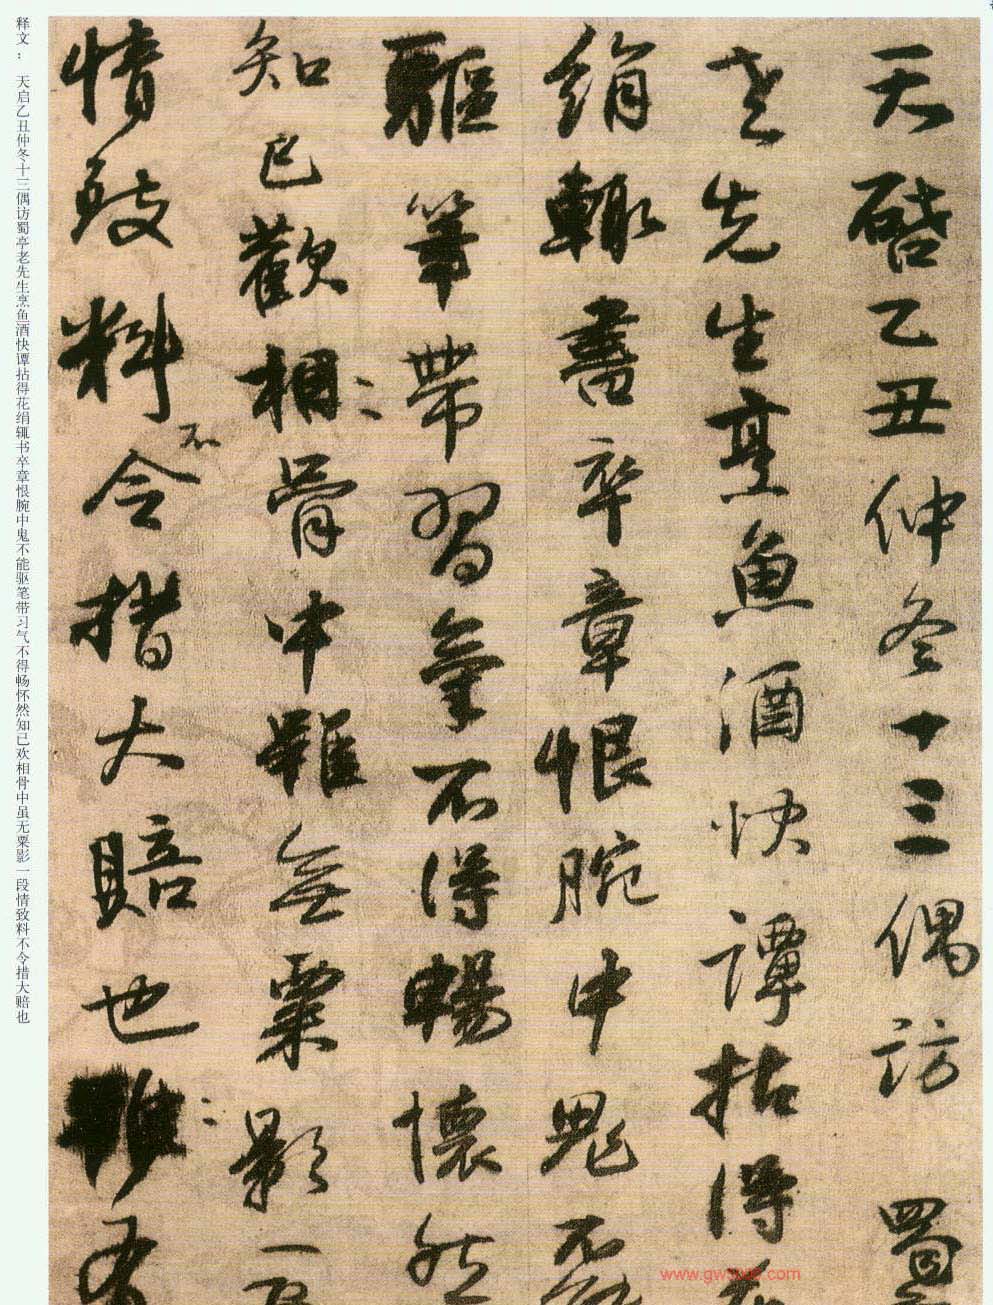 天啓乙丑仲冬十三偶訪蜀
老先生烹魚酒快譚拈得
絹輒書卒章恨腕中鬼不能
驅筆帶習氣不得暢懷然
知已歡相骨中雖無粟影一段
情致料不令措大賠也
释文： 天启乙丑仲冬十三偶访蜀亭老先生烹鱼酒快谭拈得花绢辄书卒章恨腕中鬼不能驱笔带习气不得畅怀然知已欢相骨中虽无粟影一段情致料不令措大赔也